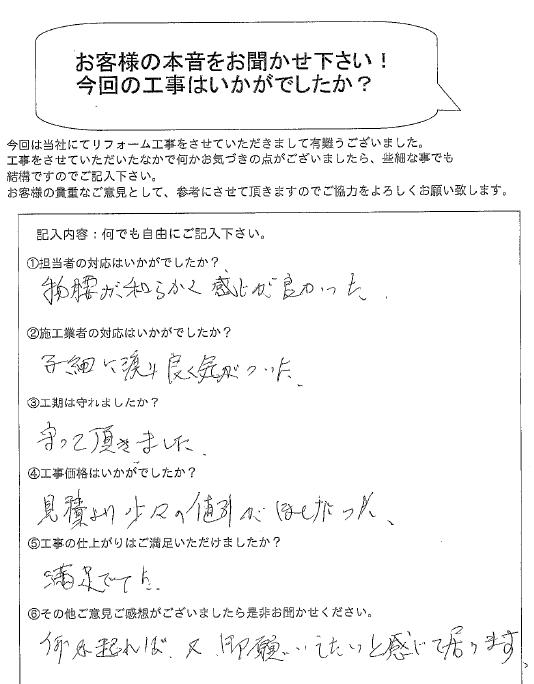 お客様の本音をお聞かせ下さい！
今回の工事はいかがでしたか？
今回は当社にてリフォーム工事をさせていただきまして有難うございました。
工事をさせていただいたなかで何かお気づきの点がございましたら、些細な事でも
結構ですのでご記入下さい。
お客様の貴重なご意見として、参考にさせて頂きますのでご協力をよろしくお願い致します。
記入内容：何でも自由にご記入下さい。
①担当者の対応はいかがでしたか？
物腰が和らかく感じが良かった．
②施工業者の対応はいかがでしたか？
子細に渡り良く気がついた．
③工期は守れましたか？
守って頂きました．
④工事価格はいかがでしたか？
見積より少々の値引がほしかった、
⑤工事の仕上がりはご満足いただけましたか？
満足でした．
⑥その他ご意見ご感想がございましたら是非お聞かせください。
何か起れば又御願いしたいと感じて居ります。